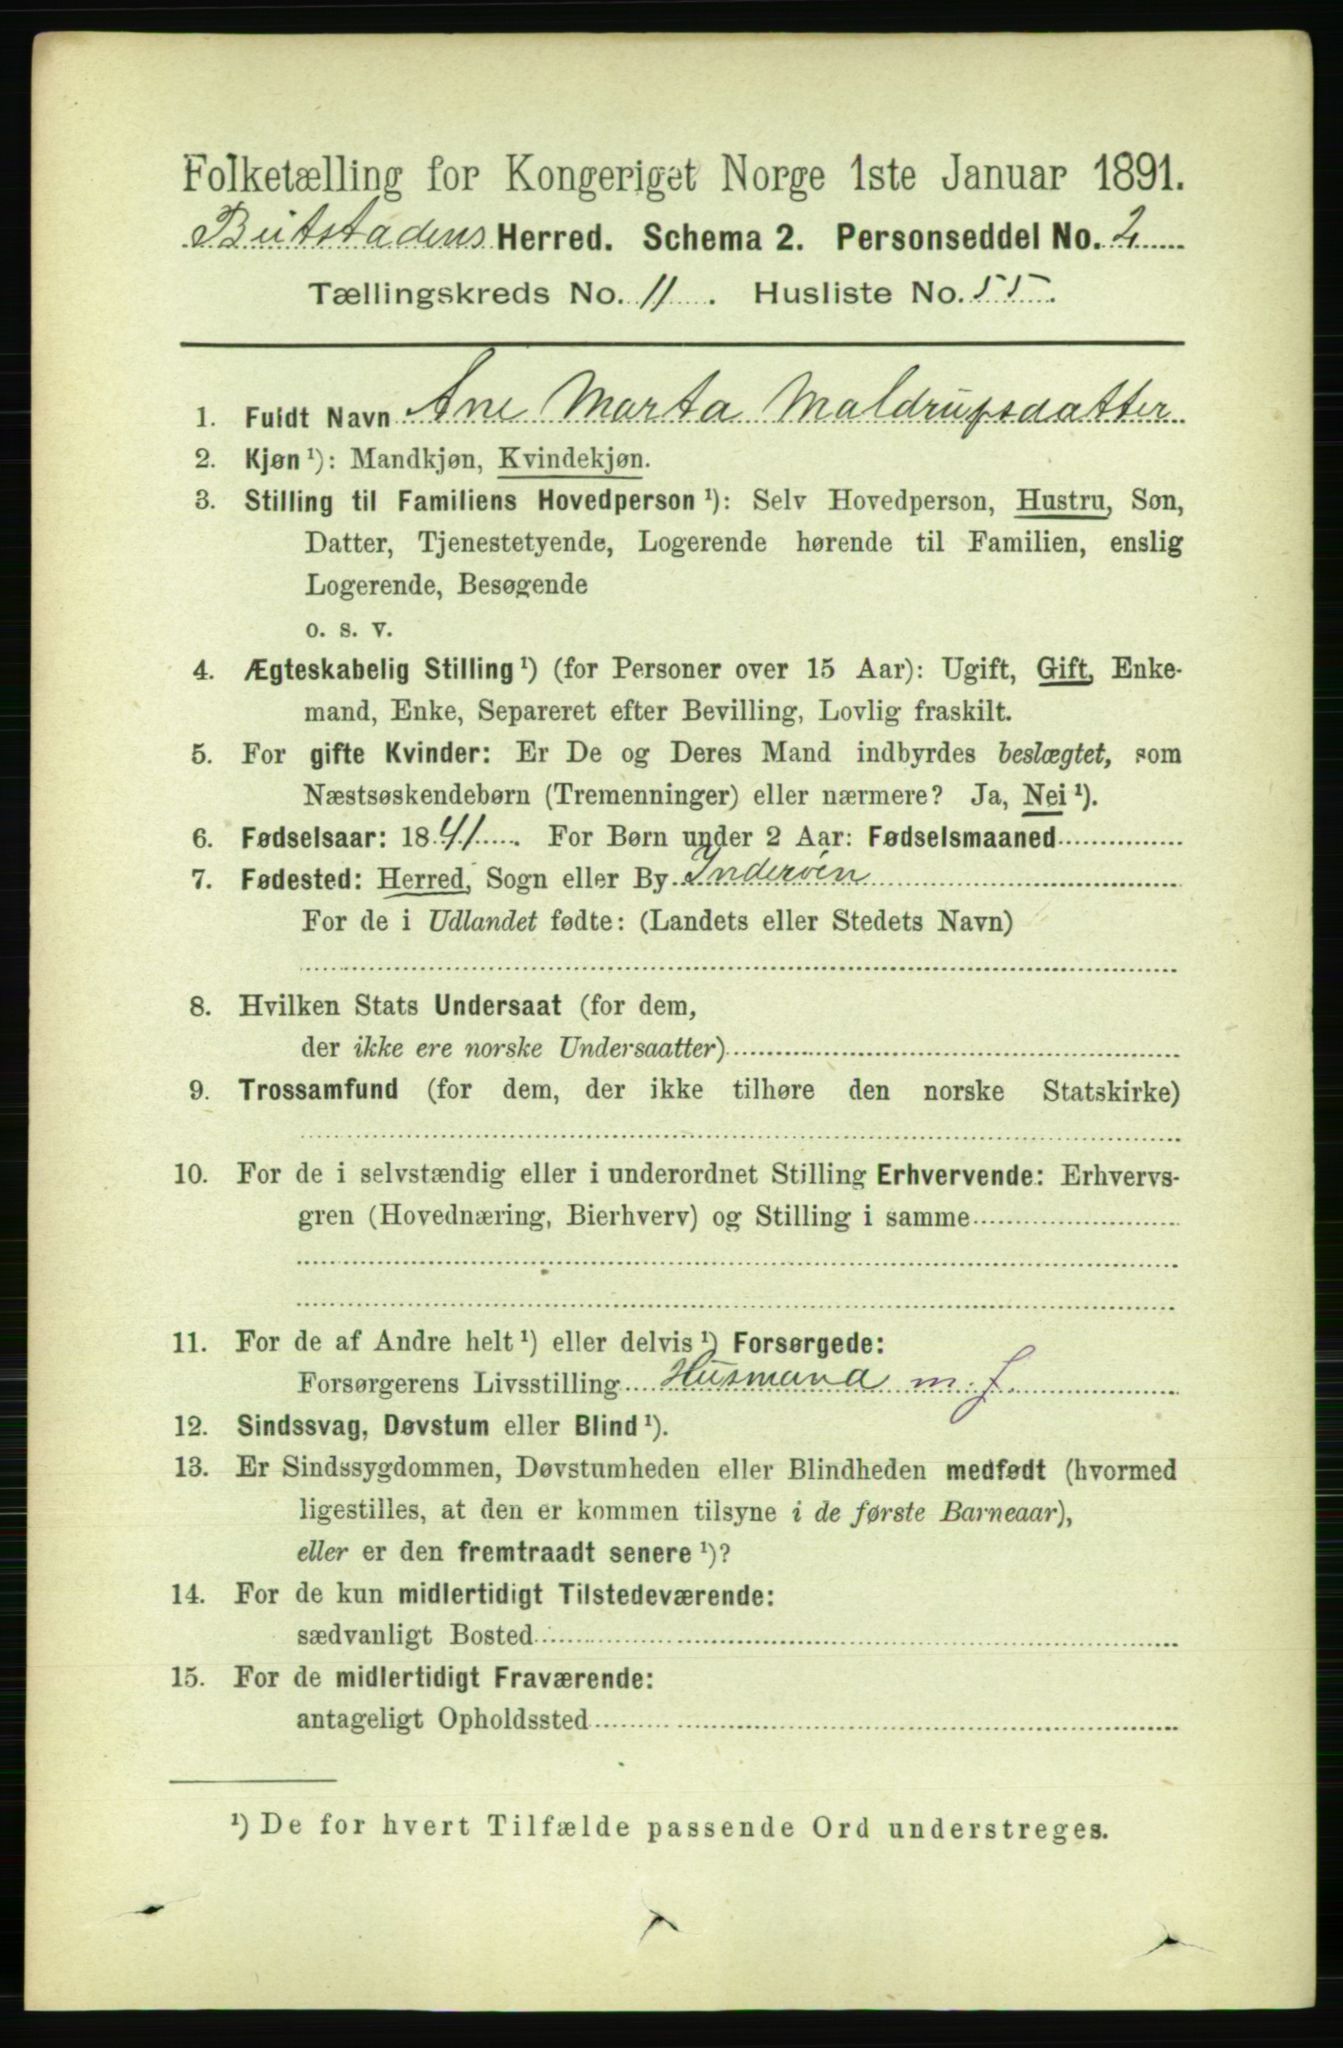 Folketælling for Kongeriget Norge 1ste Januar 1891.
Beitstadens Herred. Schema 2. Personseddel No. 2
Tællingskreds No. 11. Husliste No. 55.
1. Fuldt Navn Ane Marta Maldrupsdatter
2. Kjøn ¹): Mandkjøn, Kvindekjøn.
3. Stilling til Familiens Hovedperson ¹): Selv Hovedperson, Hustru, Søn,
Datter, Tjenestetyende, Logerende hørende til Familien, enslig
Logerende, Besøgende
o. s. v.
4. Ægteskabelig Stilling ¹) (for Personer over 15 Aar): Ugift, Gift, Enke-
mand, Enke, Separeret efter Bevilling, Lovlig fraskilt.
5. For gifte Kvinder: Er De og Deres Mand indbyrdes beslægtet, som
Næstsøskendebørn (Tremenninger) eller nærmere? Ja, Nei ¹).
6. Fødselsaar: 1841. For Børn under 2 Aar: Fødselsmaaned
7. Fødested: Herred, Sogn eller By Inderöen
For de i Udlandet fødte: (Landets eller Stedets Navn)
8. Hvilken Stats Undersaat (for dem,
der ikke ere norske Undersaatter)
9. Trossamfund (for dem, der ikke tilhøre den norske Statskirke)
10. For de i selvstændig eller i underordnet Stilling Erhvervende: Erhvervs-
gren (Hovednæring, Bierhverv) og Stilling i samme
11. For de af Andre helt ¹) eller delvis ¹) Forsørgede:
Forsørgerens Livsstilling Husmand m. J.
12. Sindssvag, Døvstum eller Blind ¹).
13. Er Sindssygdommen, Døvstumheden eller Blindheden medfødt (hvormed
ligestilles, at den er kommen tilsyne i de første Barneaar),
eller er den fremtraadt senere ¹)?
14. For de kun midlertidigt Tilstedeværende:
sædvanligt Bosted
15. For de midlertidigt Fraværende:
antageligt Opholdssted
¹) De for hvert Tilfælde passende Ord understreges.